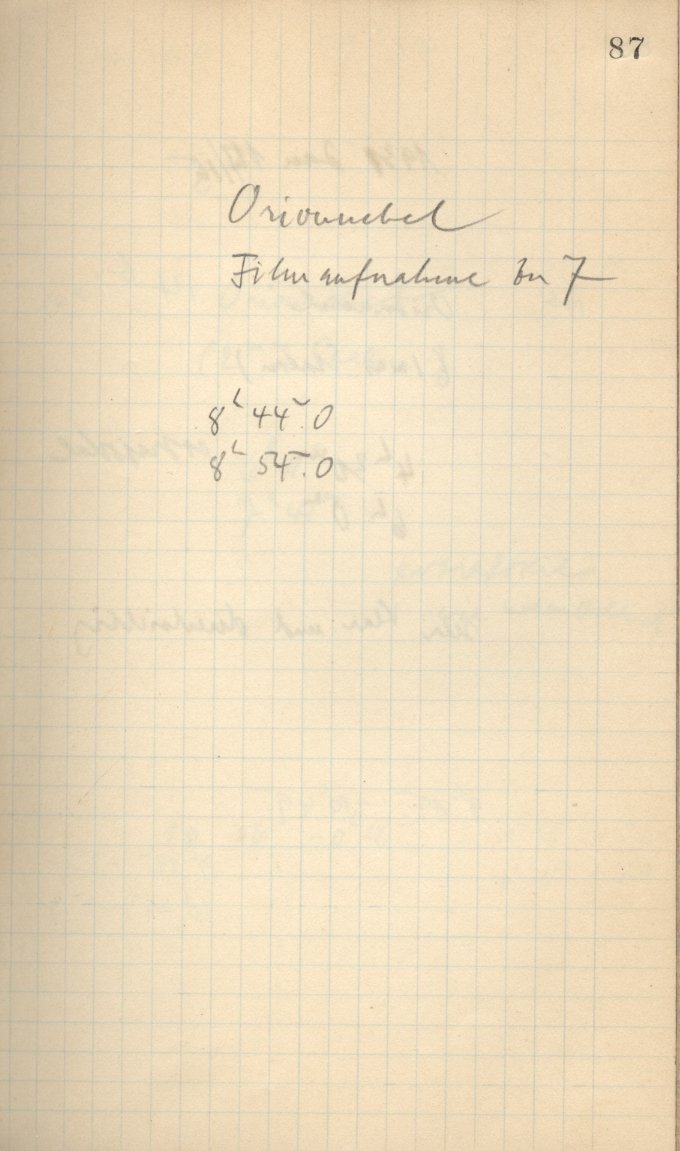 87
Orionnebel
Filmaufnahme bn 7
8ʰ 44ᵐ.0
8ʰ 54ᵐ.0